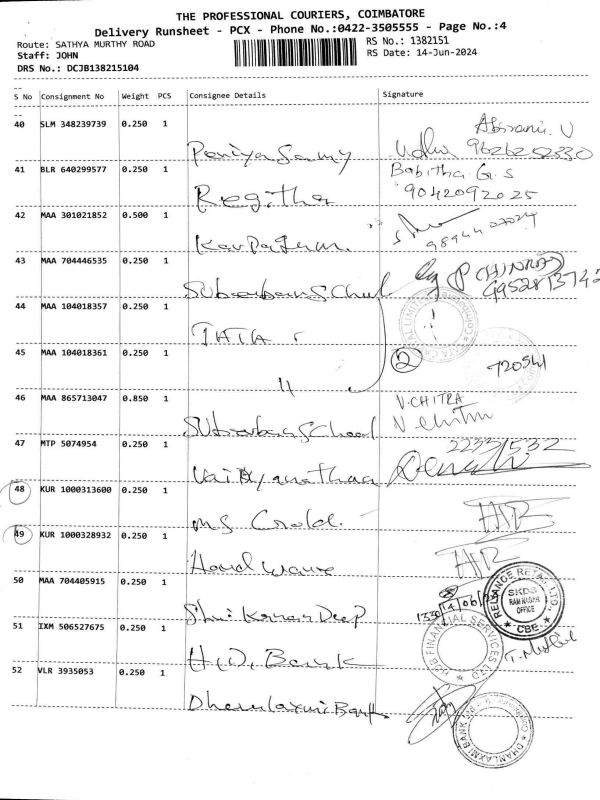 THE PROFESSIONAL COURIERS, COIMBATORE
Delivery Runsheet - PCX - Phone No.:0422-3505555 - Page No.:4
Route: SATHYA MURTHY ROAD
RS No.: 1382151
Staff: JOHN
RS Date: 14-Jun-2024
DRS No.: DCJB138215104
S No Consignment No Weight PCS Consignee Details Signature
40 SLM 348239739 0.250 1
Abirami. V
Periyasamy
9626252330
41 BLR 640299577 0.250 1
Babitha G.S
Regitha
9042092025
42 MAA 301021852 0.500 1
43 MAA 704446535 0.250 1
Suburban School
44 MAA 104018357 0.250 1
TATA
45 MAA 104018361 0.250 1
2
"
46 MAA 865713047 0.850 1
V.CHITRA
Suburban School
V. Chitra
47 MTP 5074954 0.250 1
Vaidyanathan
48 KUR 1000313600 0.250 1
MS Gold.
49 KUR 1000328932 0.250 1
Hard wave
50 MAA 704405915 0.250 1
RELIANCE RETAIL LTD.
SKDS
RAM NAGAR
OFFICE
CBE
14/06/
51 IXM 506527675 0.250 1
HDB FINANCIAL SERVICES LTD
H.D. Bank
52 VLR 3935053 0.250 1
Dhanalaxmi Bank
DHANLAXMI BANK LTD